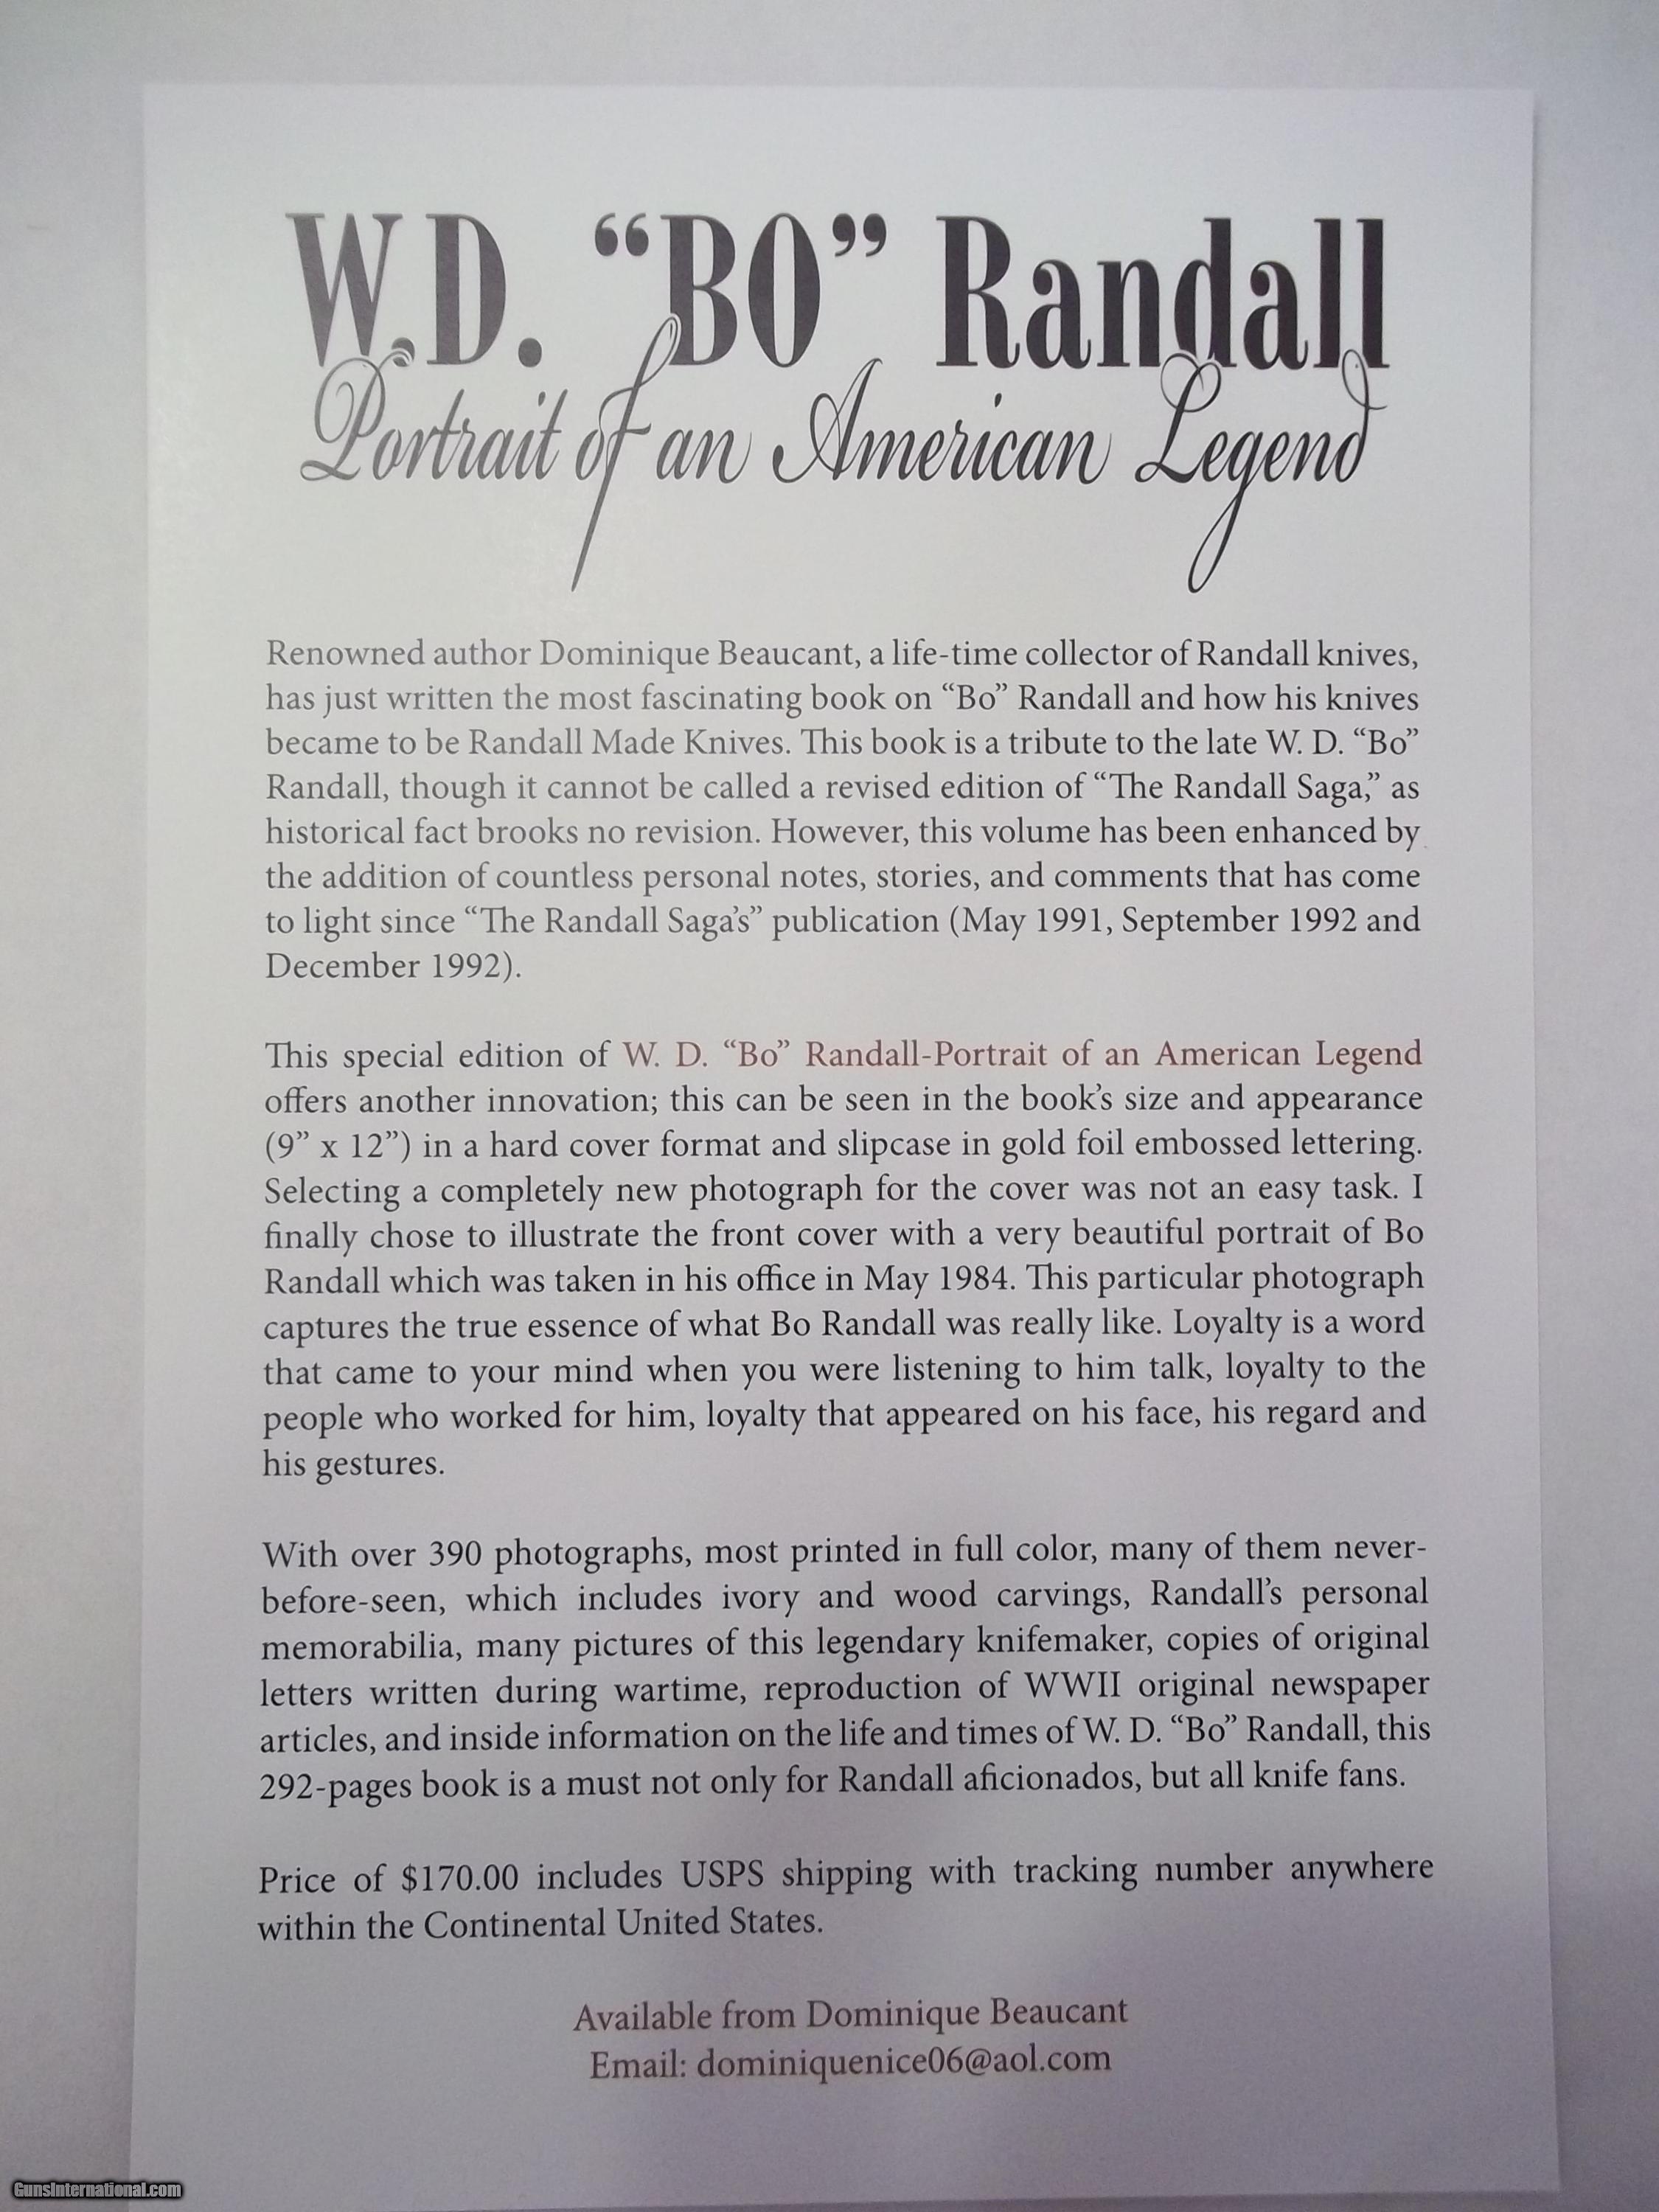 W.D. “BO” Randall
Portrait of an American Legend
Renowned author Dominique Beaucant, a life-time collector of Randall knives,
has just written the most fascinating book on “Bo” Randall and how his knives
became to be Randall Made Knives. This book is a tribute to the late W. D. “Bo”
Randall, though it cannot be called a revised edition of “The Randall Saga,” as
historical fact brooks no revision. However, this volume has been enhanced by
the addition of countless personal notes, stories, and comments that has come
to light since “The Randall Saga’s” publication (May 1991, September 1992 and
December 1992).
This special edition of W. D. “Bo” Randall-Portrait of an American Legend
offers another innovation; this can be seen in the book’s size and appearance
(9” x 12”) in a hard cover format and slipcase in gold foil embossed lettering.
Selecting a completely new photograph for the cover was not an easy task. I
finally chose to illustrate the front cover with a very beautiful portrait of Bo
Randall which was taken in his office in May 1984. This particular photograph
captures the true essence of what Bo Randall was really like. Loyalty is a word
that came to your mind when you were listening to him talk, loyalty to the
people who worked for him, loyalty that appeared on his face, his regard and
his gestures.
With over 390 photographs, most printed in full color, many of them never-
before-seen, which includes ivory and wood carvings, Randall’s personal
memorabilia, many pictures of this legendary knifemaker, copies of original
letters written during wartime, reproduction of WWII original newspaper
articles, and inside information on the life and times of W. D. “Bo” Randall, this
292-pages book is a must not only for Randall aficionados, but all knife fans.
Price of $170.00 includes USPS shipping with tracking number anywhere
within the Continental United States.
Available from Dominique Beaucant
Email: dominiquenice06@aol.com
GunsInternational.com